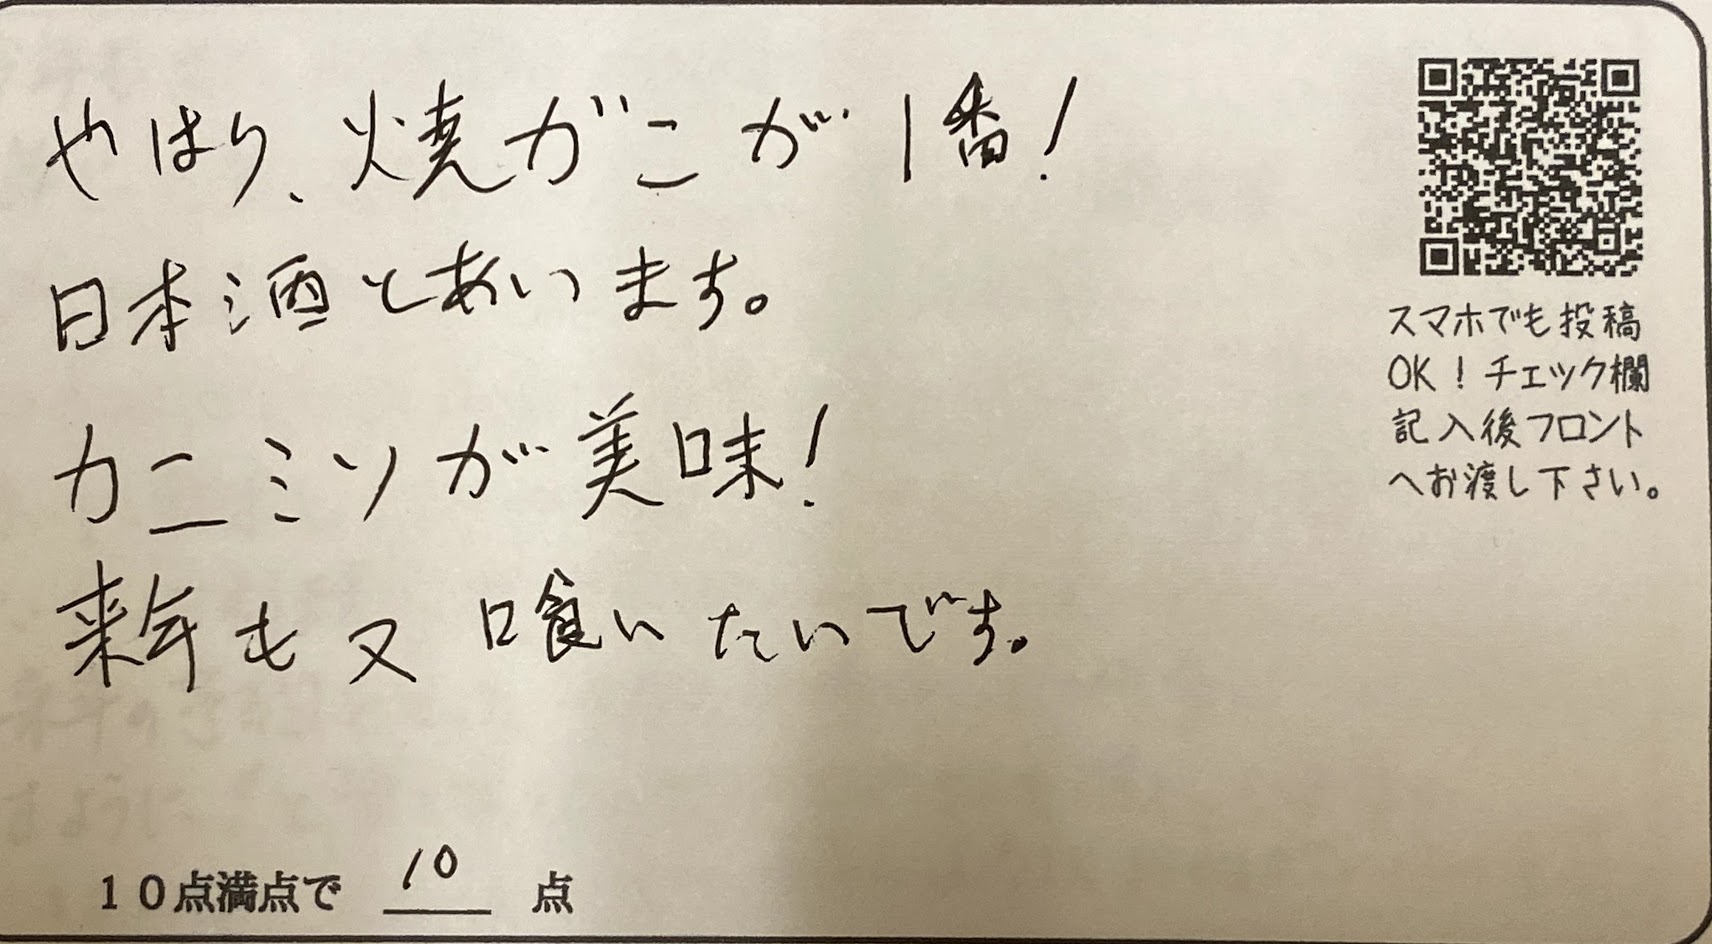 やはり、焼ガニが1番!
日本酒とあいます。
カニミソが美味!
来年も又喰いたいです。
10点満点で 10 点
スマホでも投稿
OK!チェック欄
記入後フロント
へお渡し下さい。